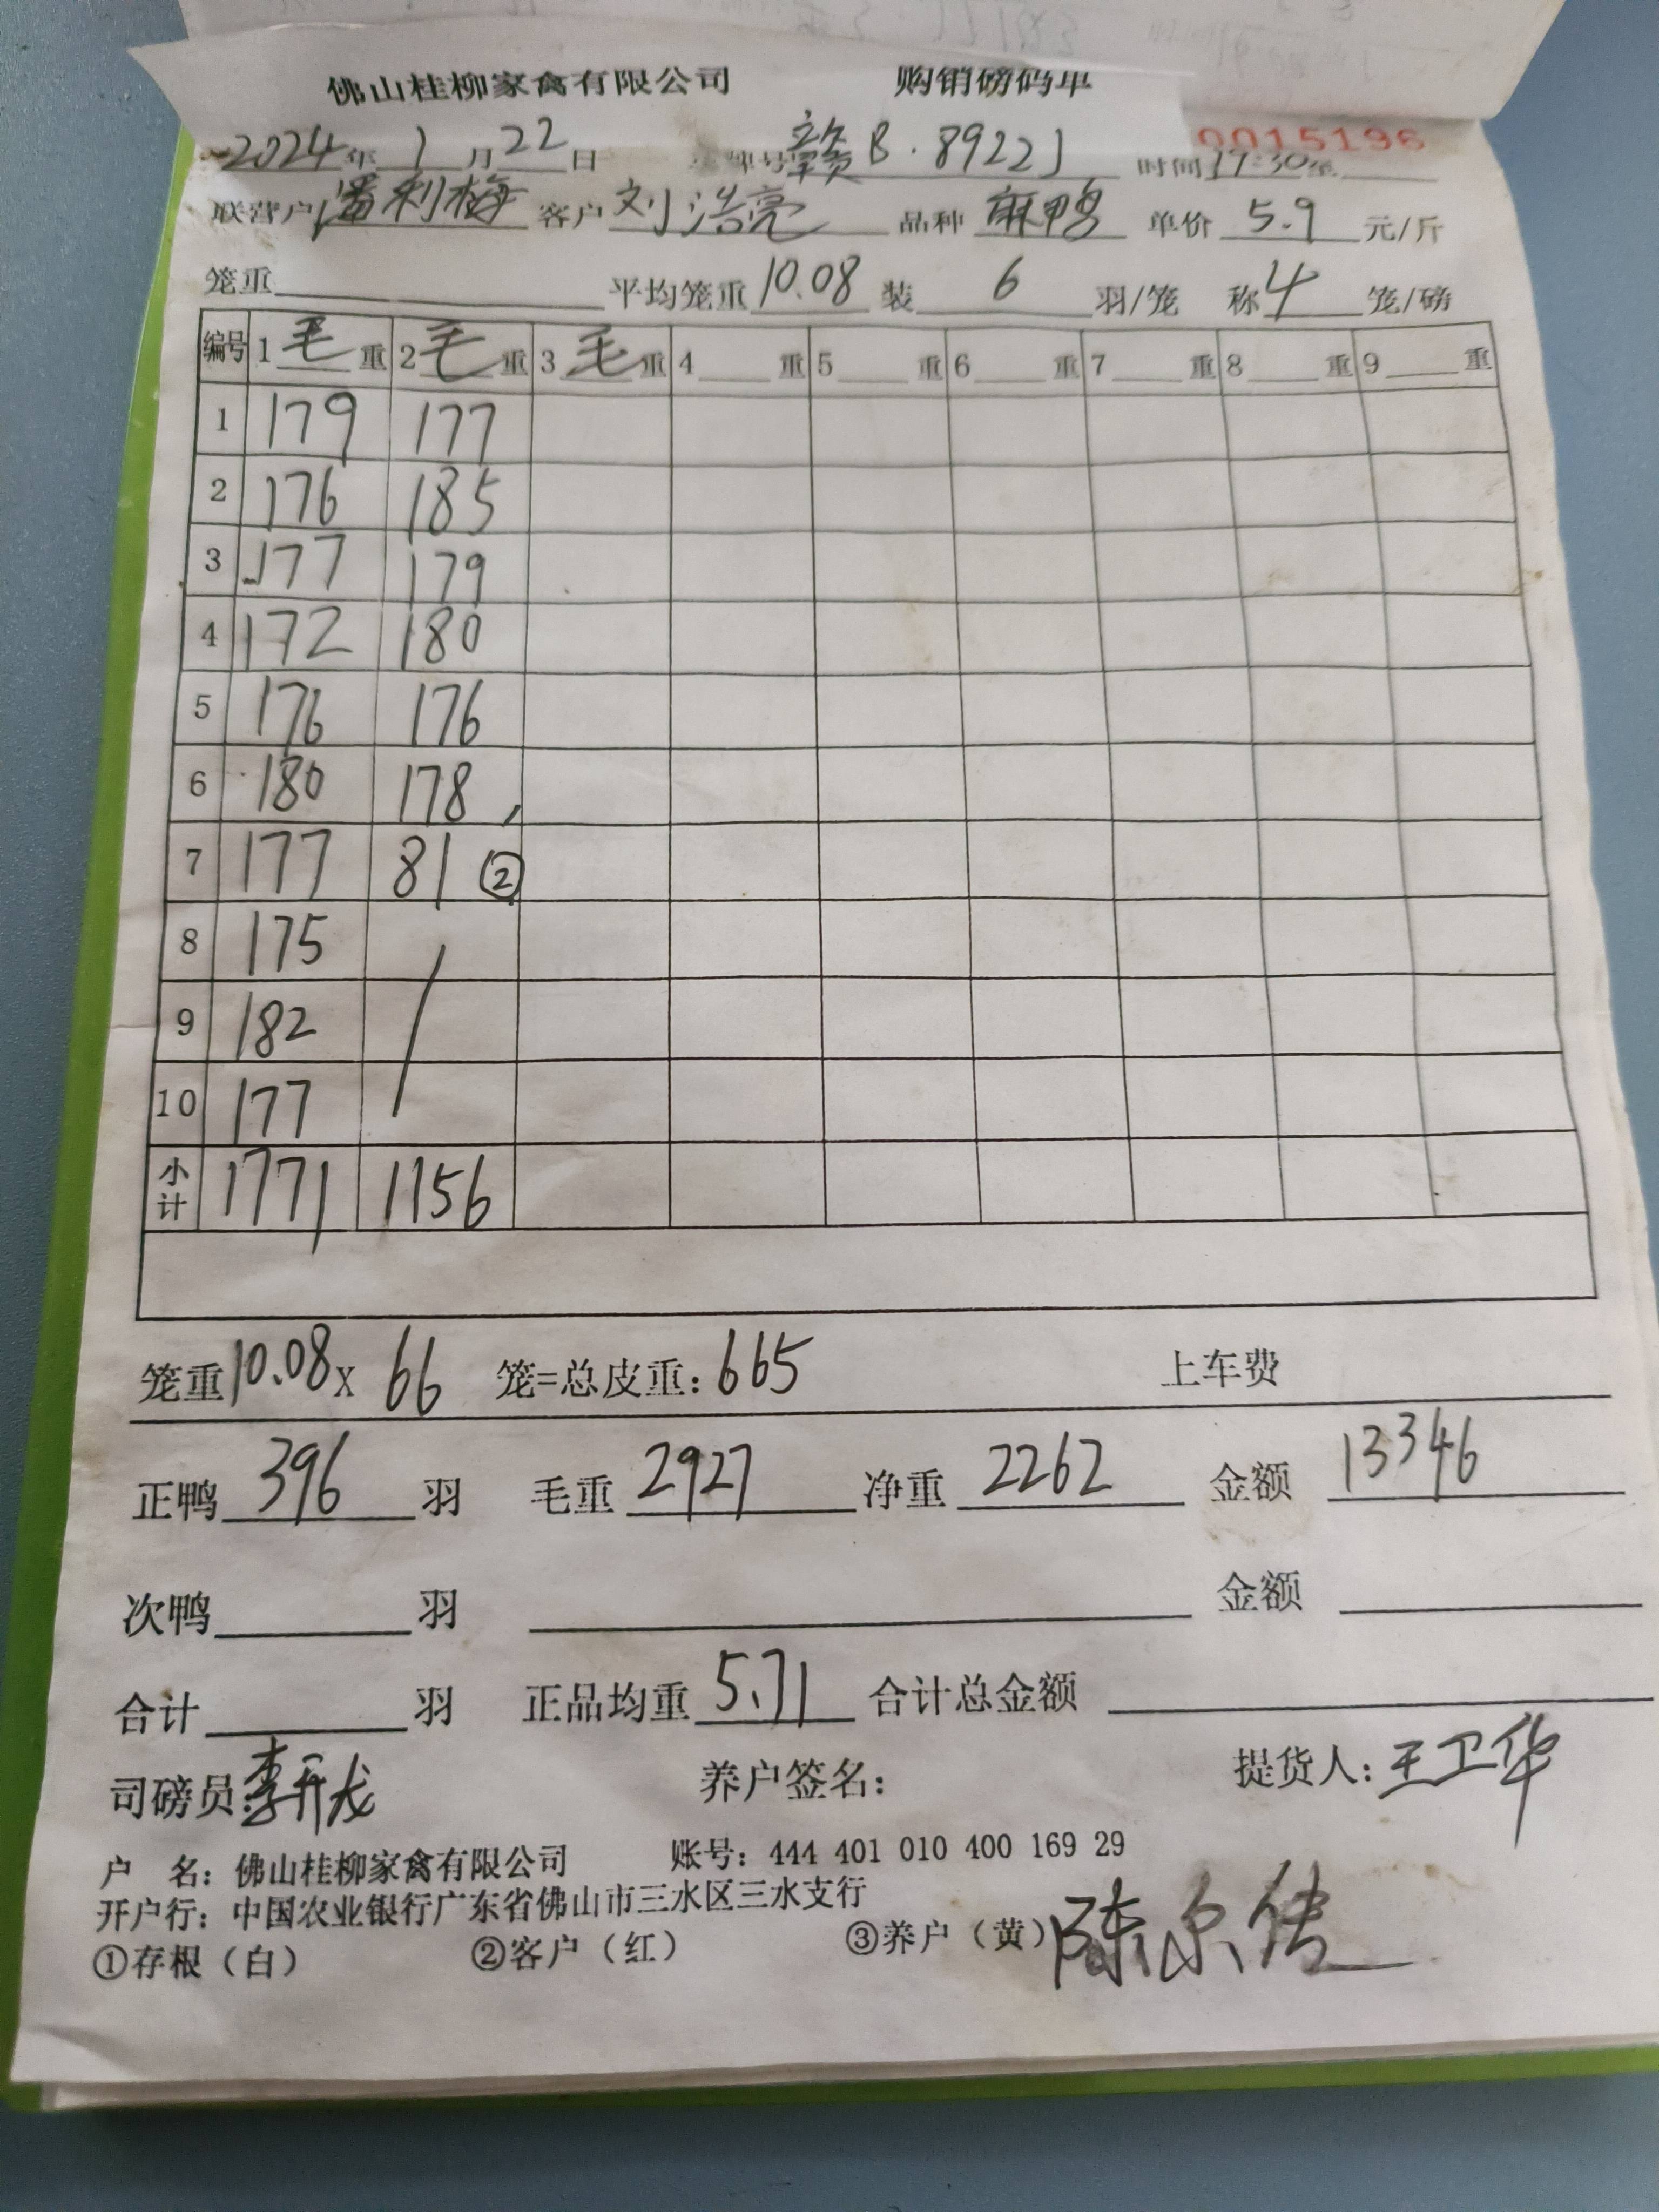 佛山桂柳家禽有限公司 购销磅码单
2024年 1 月 22 日 牌号 赣B·8922J 0015196
时间 17:30至
联营户 潘利梅 客户 刘浩亮 品种 麻鸭 单价 5.9 元/斤
笼重 平均笼重 10.08 装 6 羽/笼 称 4 笼/磅
编号 1 毛 重 2 毛 重 3 毛 重 4 重 5 重 6 重 7 重 8 重 9 重
1 179 177
2 176 185
3 177 179
4 172 180
5 176 176
6 180 178
7 177 81 ②
8 175
9 182
10 177
小计 1771 1156
笼重 10.08 X 66 笼=总皮重: 665 上车费
正鸭 396 羽 毛重 2927 净重 2262 金额 13346
次鸭 羽 金额
合计 羽 正品均重 5.71 合计总金额
司磅员: 李开龙 养户签名: 提货人: 王卫华
户 名: 佛山桂柳家禽有限公司 账号: 444 401 010 400 169 29
开户行: 中国农业银行广东省佛山市三水区三水支行
①存根（白） ②客户（红） ③养户（黄）